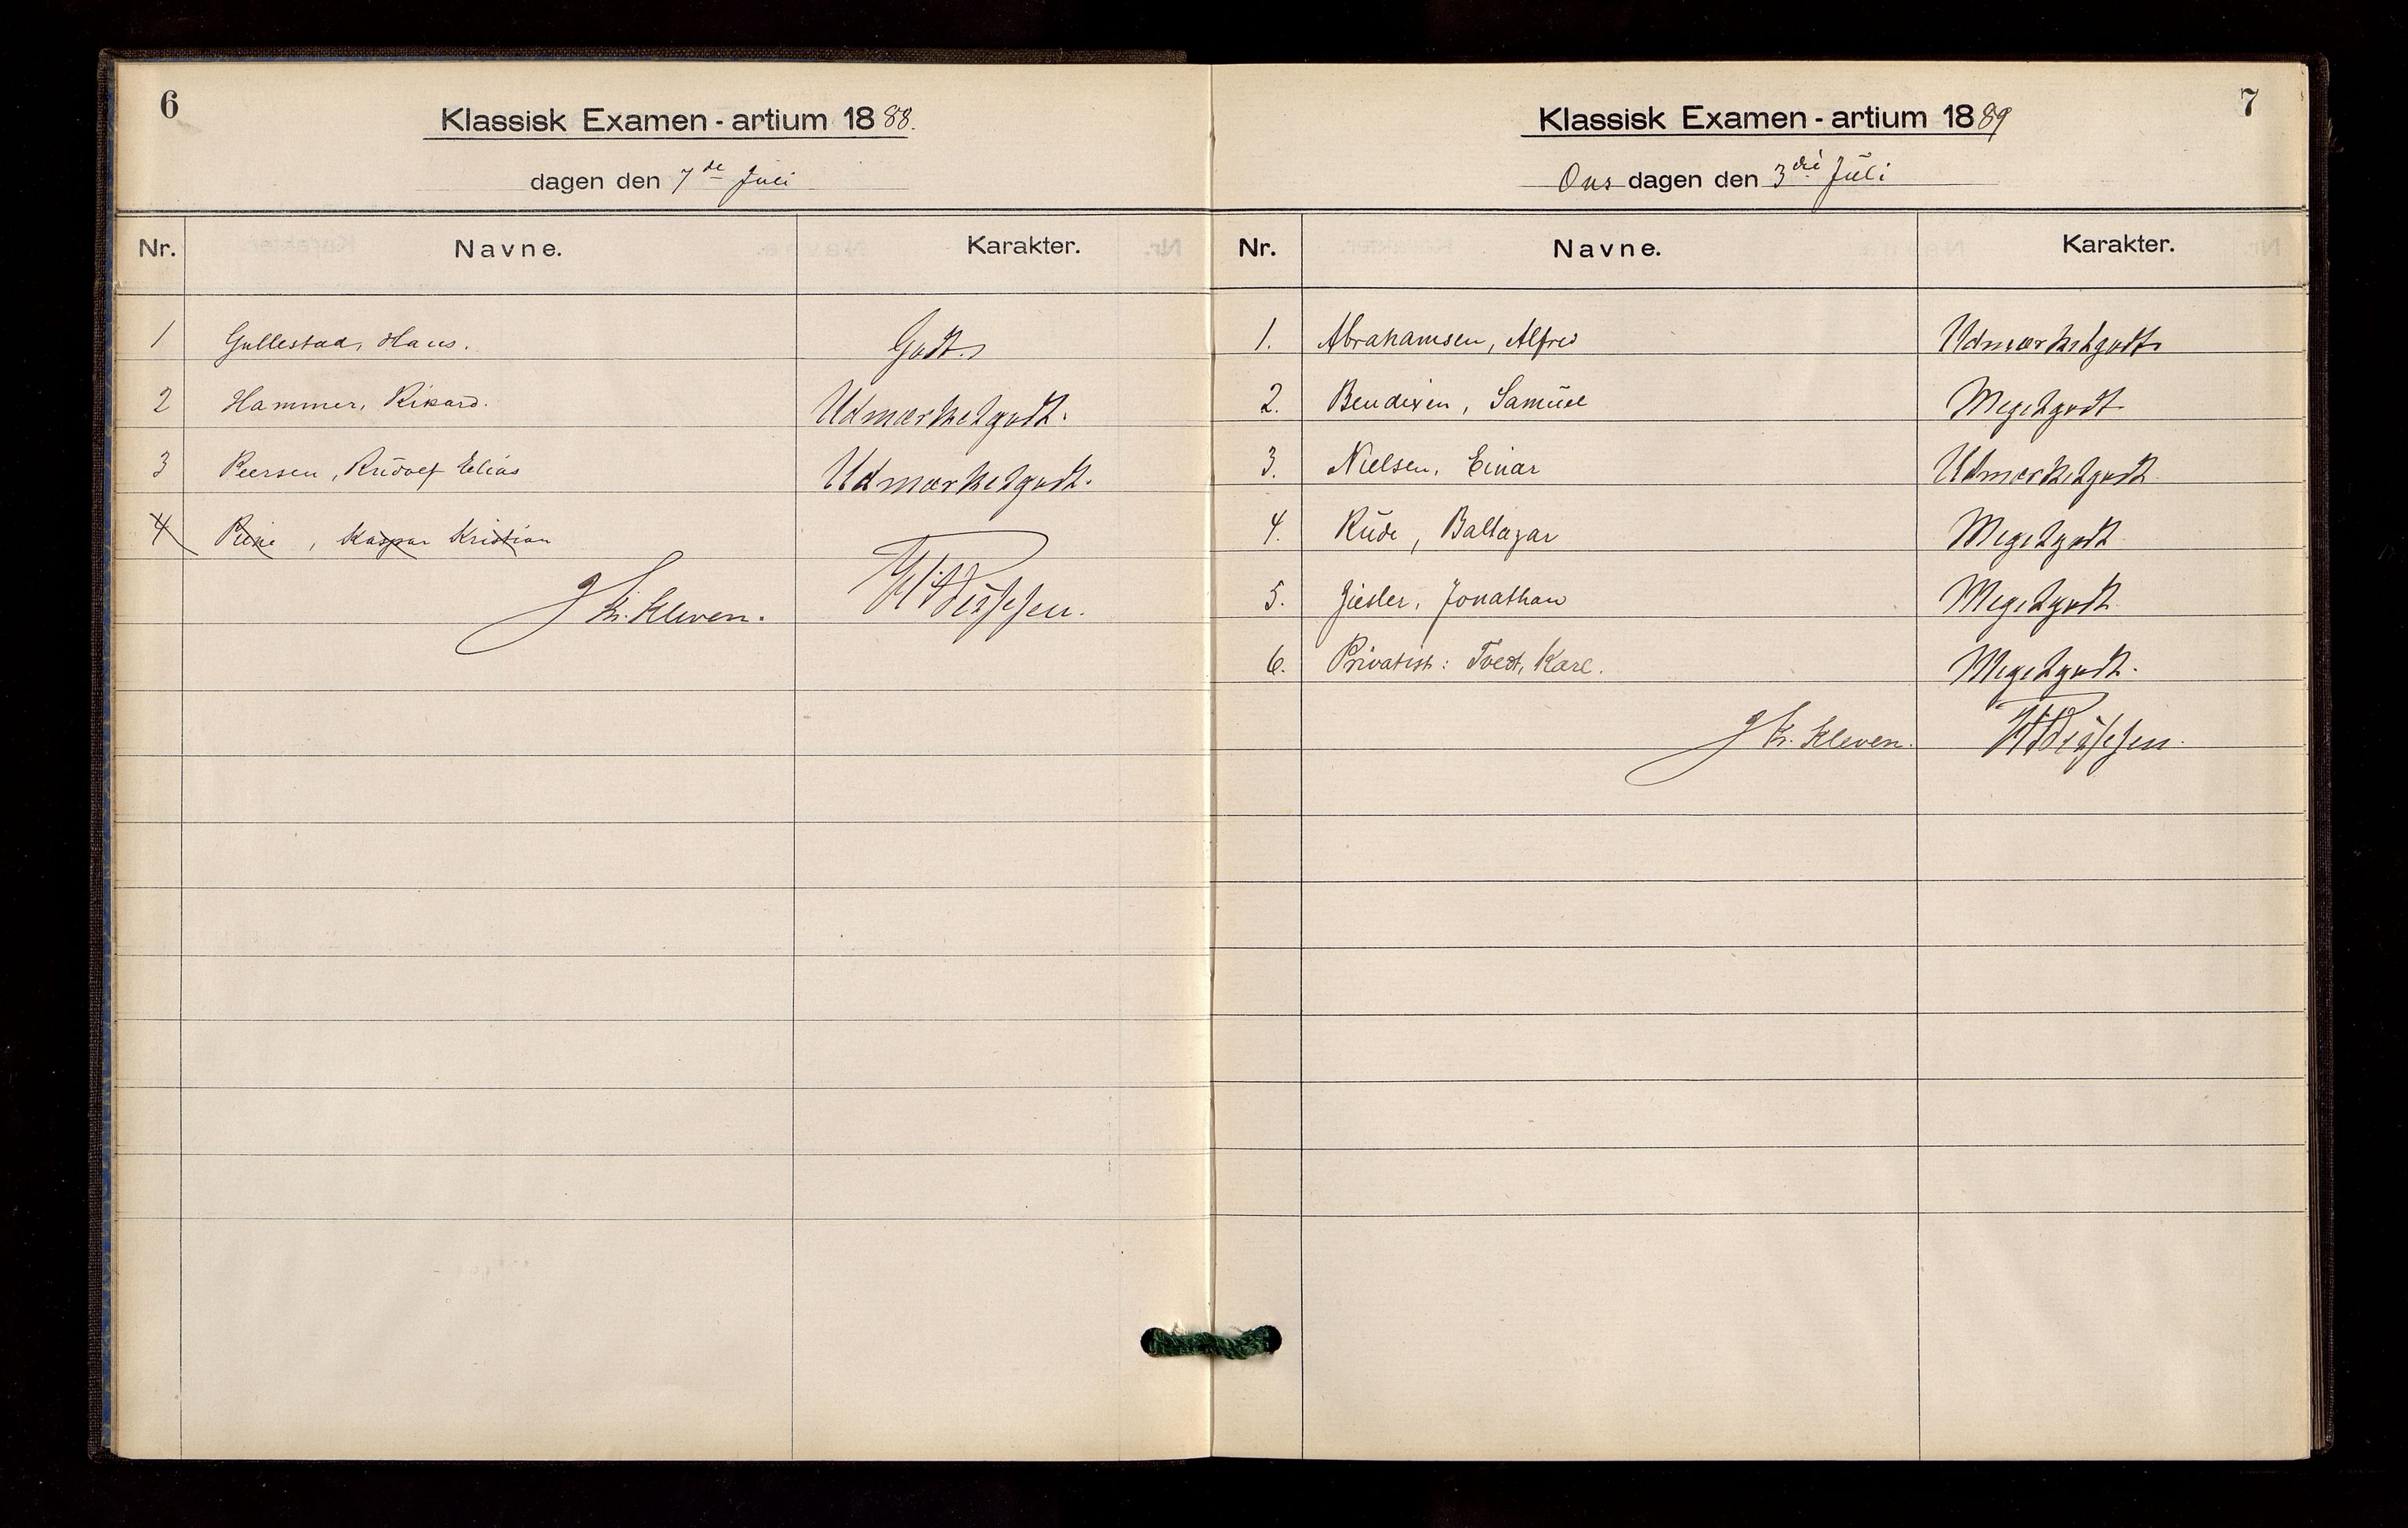 6
Klassisk Examen - artium 1888.
dagen den 7de Juli
Nr. Navne. Karakter.
1 Gullestad, Hans. Godt.
2 Hammer, Rikard. Udmærketgodt.
3 Peersen, Rudolf Elias Udmærketgodt.
4 , Kaspar Kristian
Kr. Kleven.
7
Klassisk Examen - artium 1889
Onsdagen den 3die Juli
Nr. Navne. Karakter.
1. Abrahamsen, Alfred Udmærketgodt
2. Bendixen, Samuel Megetgodt
3. Nielsen, Einar Udmærketgodt
4. Rude, Baltazar Megetgodt
5. Ziesler, Jonathan Megetgodt
6. Privatist: Tvedt, Karl. Megetgodt.
Kr. Kleven.